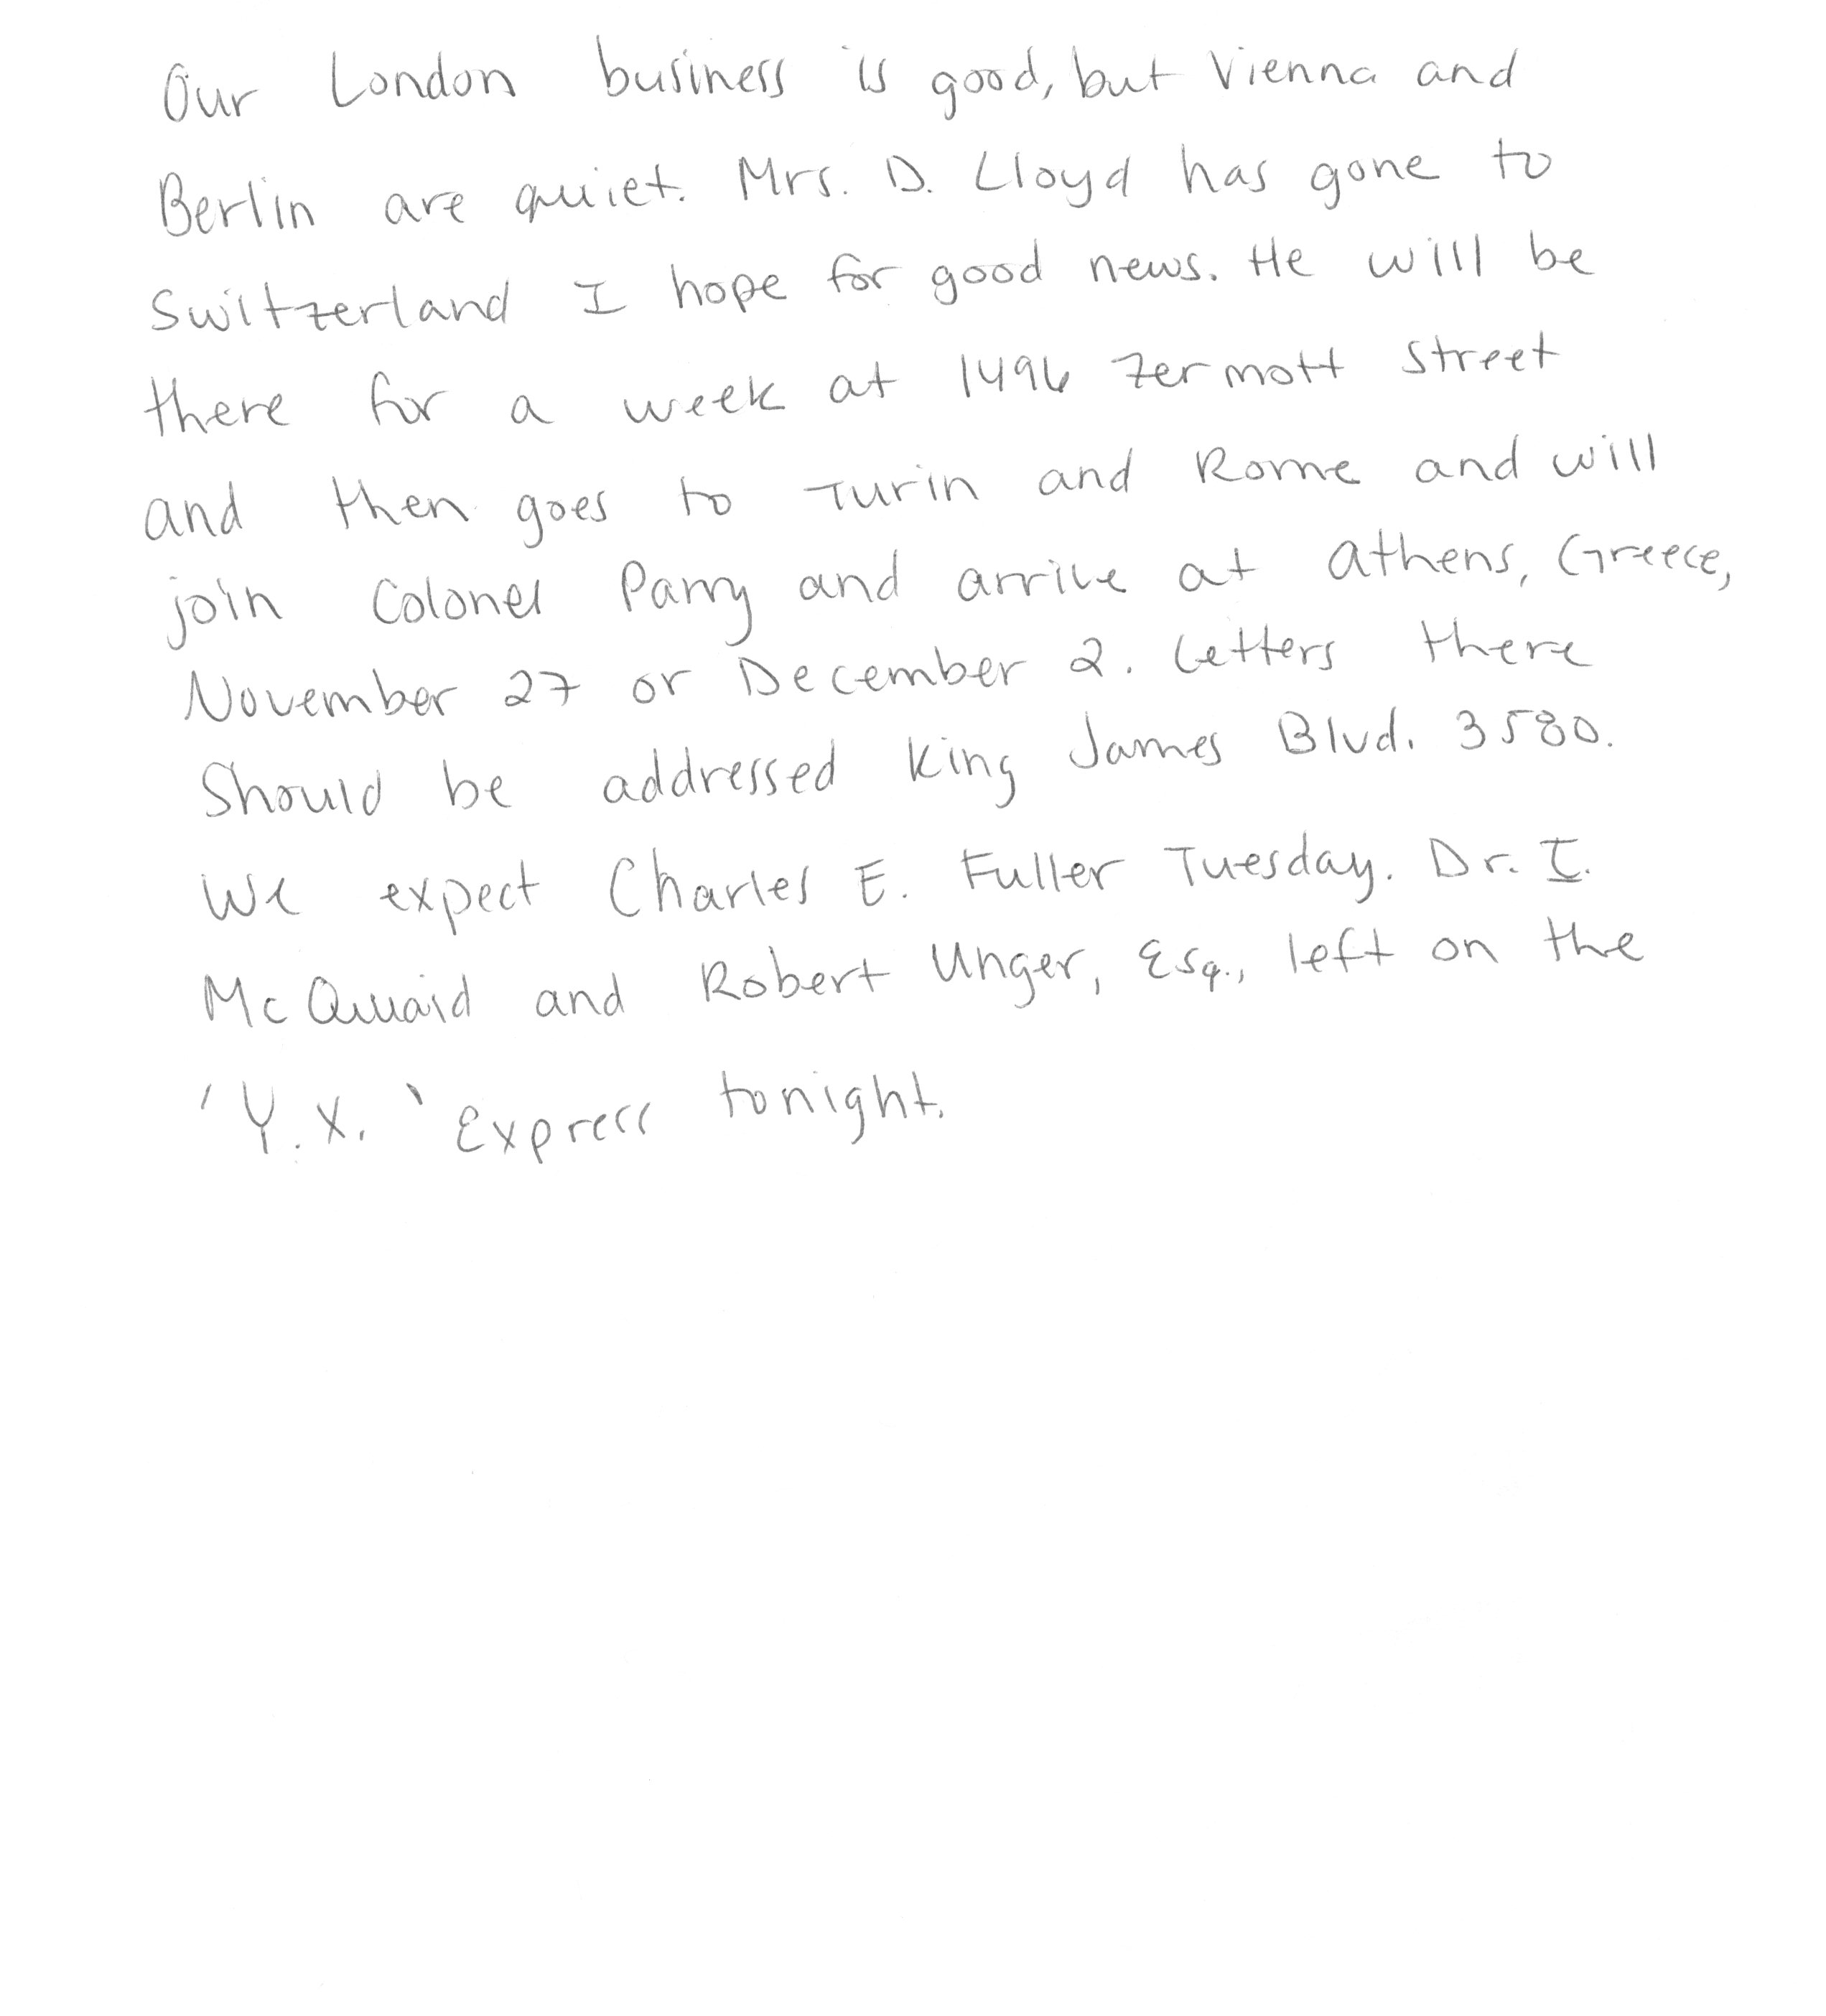 Our London business is good, but Vienna and
Berlin are quiet. Mrs. D. Lloyd has gone to
Switzerland I hope for good news. He will be
there for a week at 1496 Zermott Street
and then goes to Turin and Rome and will
join Colonel Parry and arrive at Athens, Greece,
November 27 or December 2. Letters there
Should be addressed King James Blvd. 3580.
We expect Charles E. Fuller Tuesday. Dr. I.
McQuaid and Robert Unger, Esq., left on the
'Y.X.' Express tonight.